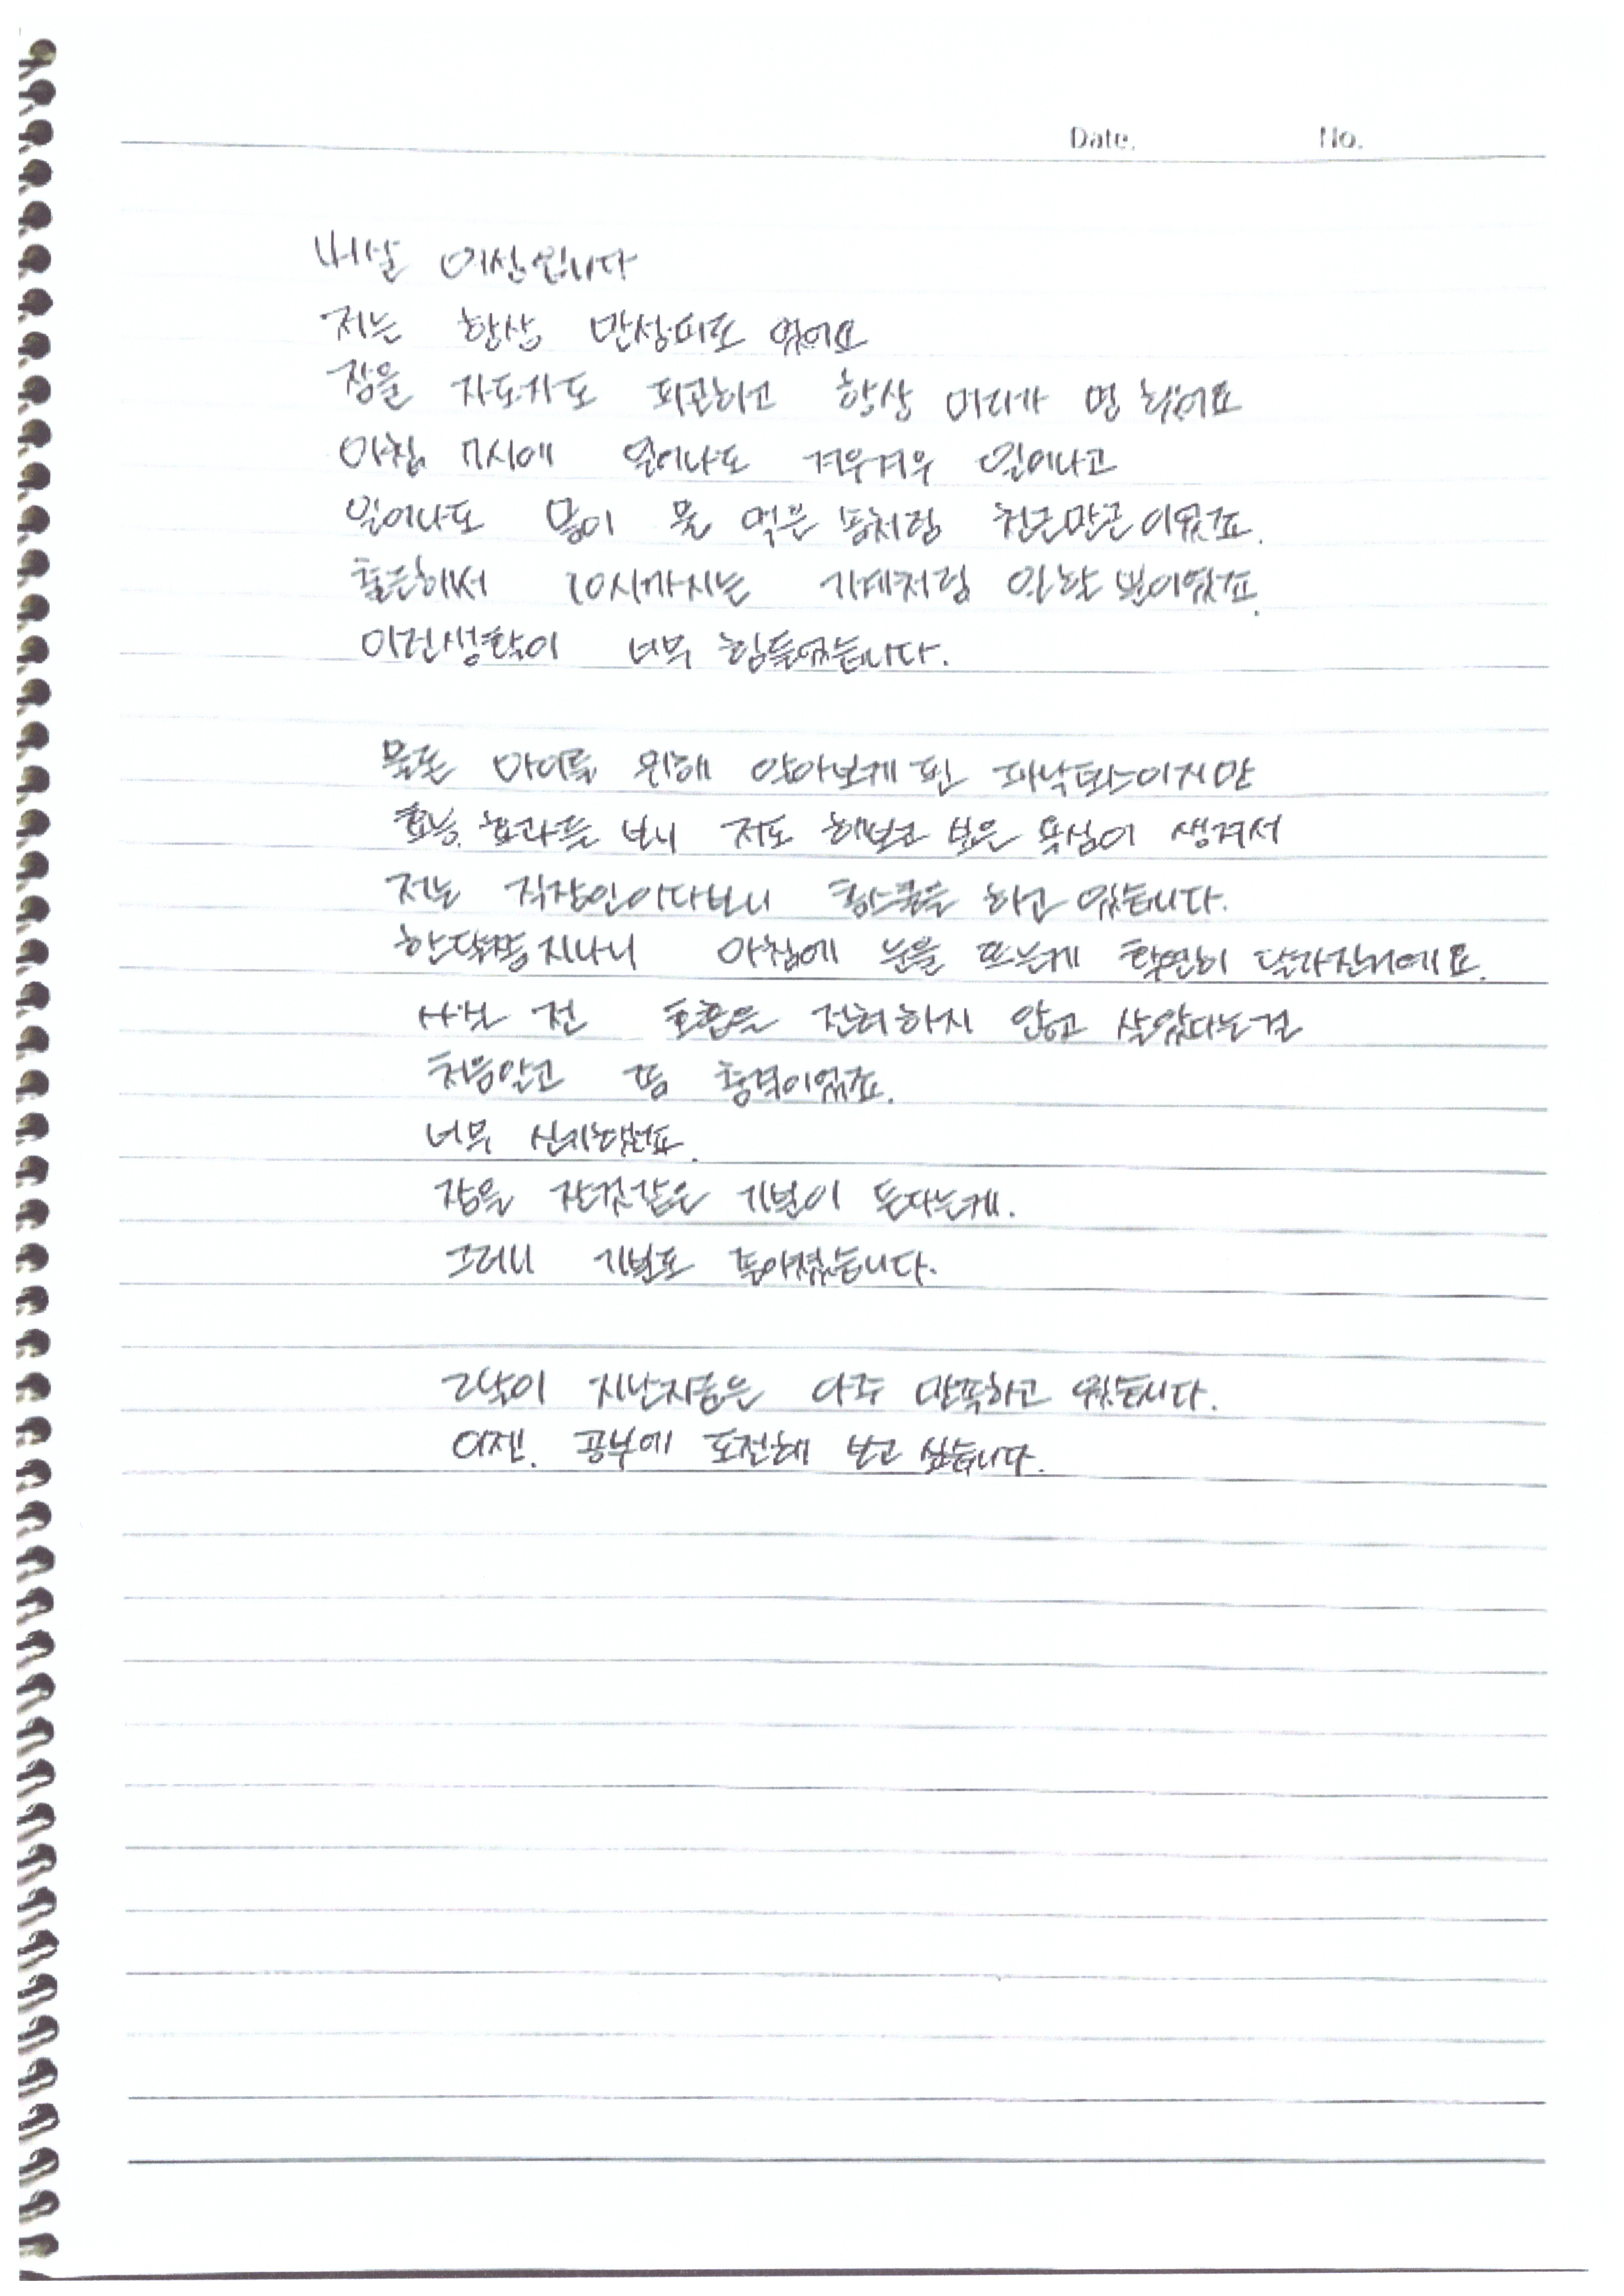 Date. No.
저는 항상 만성피로 였어요
잠을 자도자도 피곤하고 항상 머리가 멍 했어요
아침 7시에 일어나도 겨우겨우 일어나고
일어나도 몸이 물 먹은 솜처럼 천근만근이었죠.
출근해서 10시까지는 기계처럼 일할 뿐이였죠.
이런생활이 너무 힘들었습니다.
물론 아이를 위해 알아보게 된 파낙토스이지만
효능, 효과를 보니 저도 해보고 싶은 욕심이 생겨서
저는 직장인이다보니 홈스쿨을 하고 있습니다.
한달쯤 지나니 아침에 눈을 뜨는게 확연히 달라진거예요.
사실 전 호흡을 전혀하지 않고 살았다는걸
처음알고 좀 충격이였죠.
너무 신기했어요.
잠을 잔것같은 기분이 든다는게.
그러니 기분도 좋아졌습니다.
2달이 지난지금은 아주 만족하고 있습니다.
이젠. 공부에 도전해 보고 싶습니다.